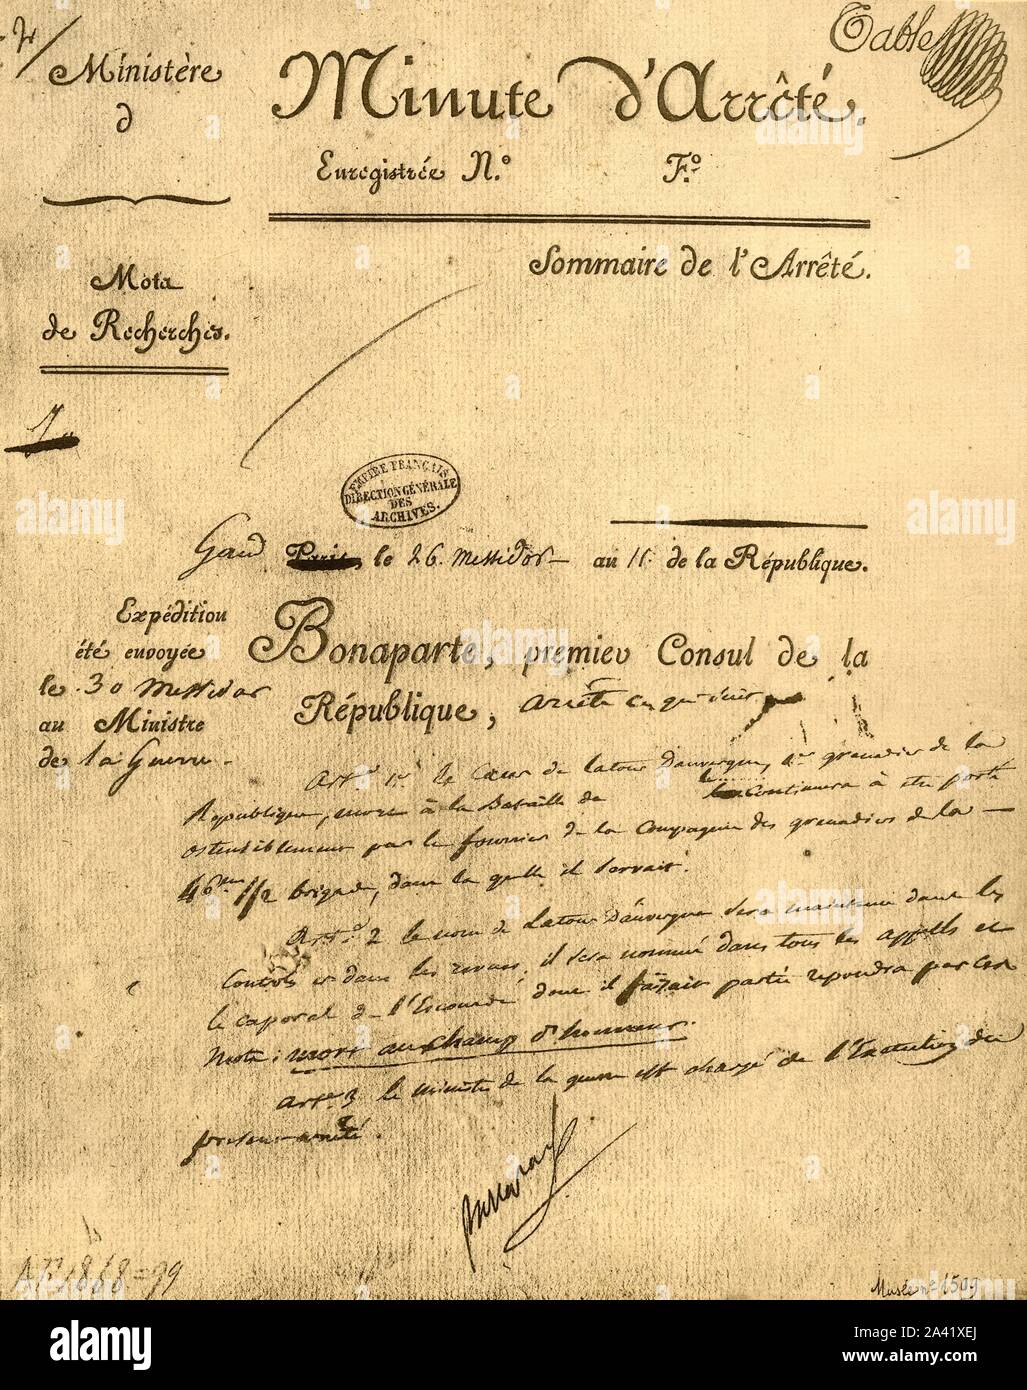 Table
Ministère
d
Minute d'Arrêté.
Enregistrée N.º F.º
Sommaire de l'Arrêté.
Nota
de Recherches.
EMPIRE FRANÇAIS
DIRECTION GÉNÉRALE
DES
ARCHIVES.
Gand Paris, le 26 messidor au 11. de la République.
Expédition
été envoyée
le 30 messidor
au Ministre
de la Guerre
Bonaparte, premier Consul de la
République, arrête ce qui suit
Art. 1er le Cœur de latour dauvergne, 1er grenadier de la
République, mort à la Bataille de continuera à être porté
ostensiblement par le fourrier de la Compagnie des grenadiers de la
46me 1/2 brigade, dans la quelle il servait.
Art. 2 le nom de Latour Dauvergne sera maintenu dans les
Controles et dans les revues, il sera nommé dans tous les appels et
le caporal de l'Escouade dont il faisait partie repondra par ces
mots: mort au champ d'honneur.
Art. 3 le ministre de la guerre est chargé de l'Execution du
present arrêté.
AF 1868=99
Musée nº 1509
alamy
Image ID: 2A41XEJ
www.alamy.com